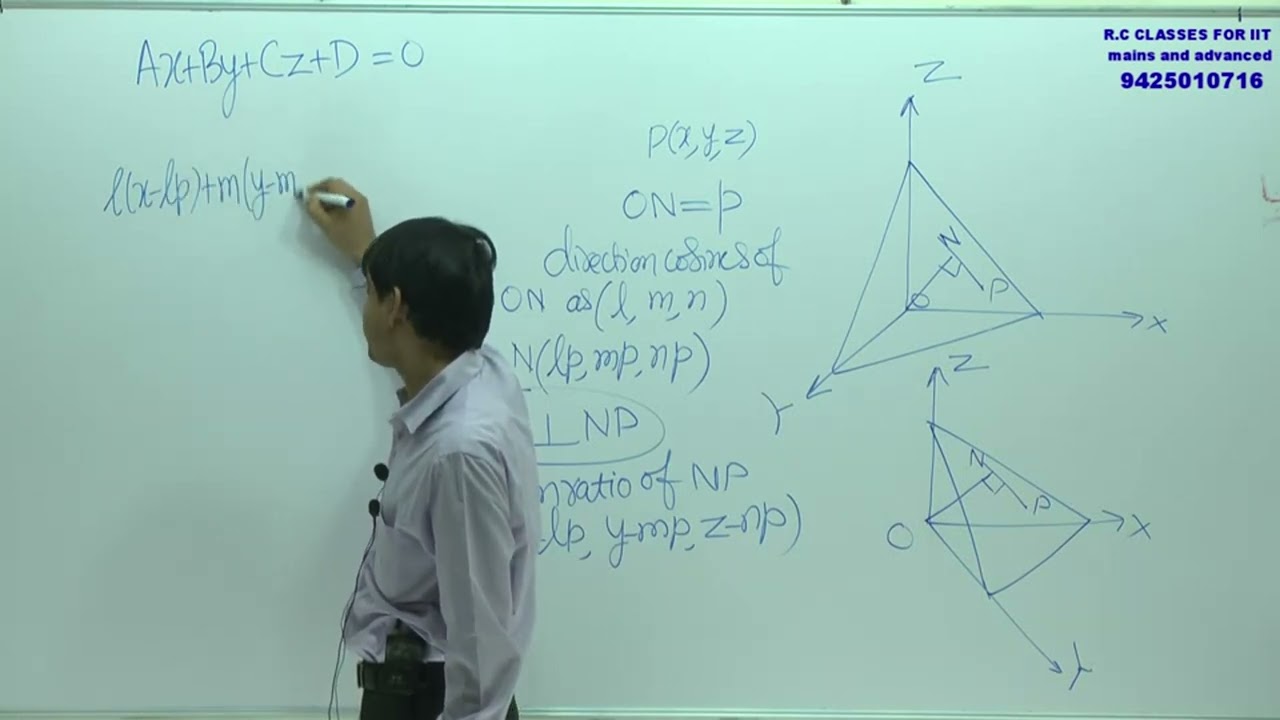 Ax+By+Cz+D=0
l(x-lp)+m(y-m
P(x,y,z)
ON=p
direction cosines of
ON as(l, m, n)
N(lp, mp, np)
⊥ NP
nratio of NP
-lp, y-mp, z-np)
Z
N
O
P
X
Y
Z
N
P
O
X
Y
R.C CLASSES FOR IIT
mains and advanced
9425010716